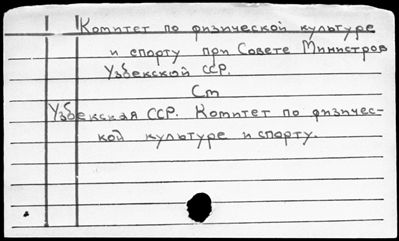 Комитет по физической культуре
и спорту при Совете Министров
Узбекской ССР.
См
Узбекская ССР. Комитет по физичес-
кой культуре и спорту.